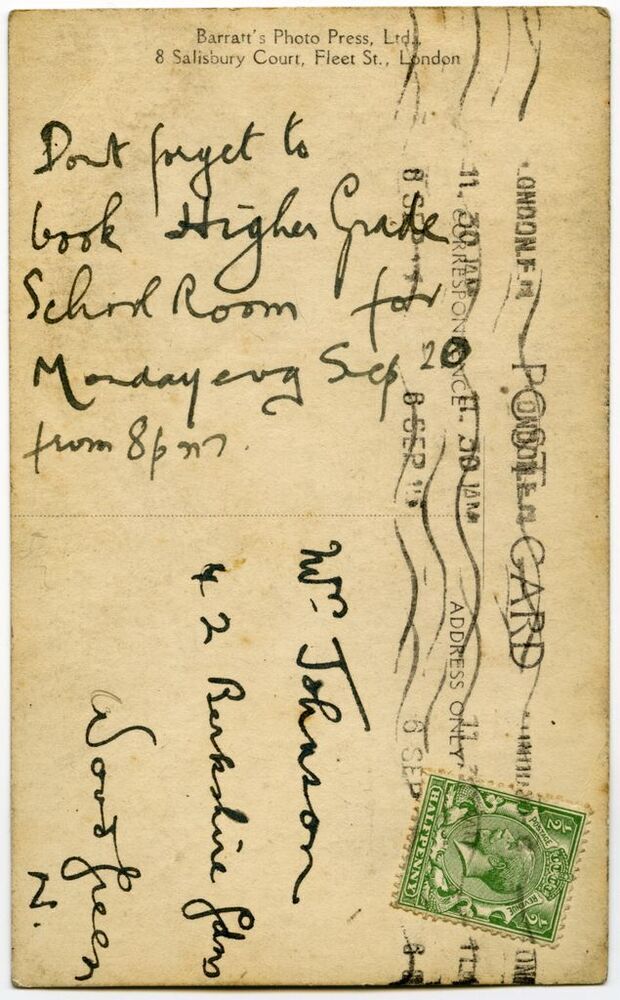 Barratt's Photo Press, Ltd.,
8 Salisbury Court, Fleet St., London
Dont forget to
book Higher Grade
School Room for
Monday evng Sep 20
from 8pm.
POST CARD
CORRESPONDENCE.
ADDRESS ONLY
LONDON.F.M
11. 30 AM
8 SEP
LONDON.F.M
11. 30 AM
8 SEP
11
8 SEP
Mr. Johnson
42 Berkshire Gdns
Wood Green
N.
POSTAGE
REVENUE
HALFPENNY
½
½